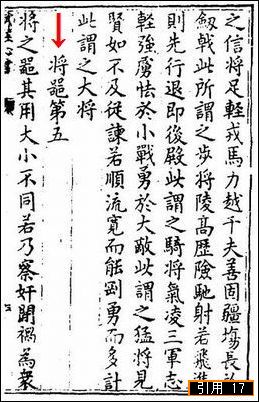 之信將足輕戎馬力越千夫善固疆埸長於
劔戟此所謂之步將陵髙歷險馳射若飛進
則先行退即後殿此謂之騎將氣凌三軍志
輕強虜怯於小戰勇於大敵此謂之猛將見
賢如不及從諫若順流寛而能剛勇而多計
此謂之大將
將噐第五
將之噐其用大小不同若乃察奸聞禍為衆
引用 17